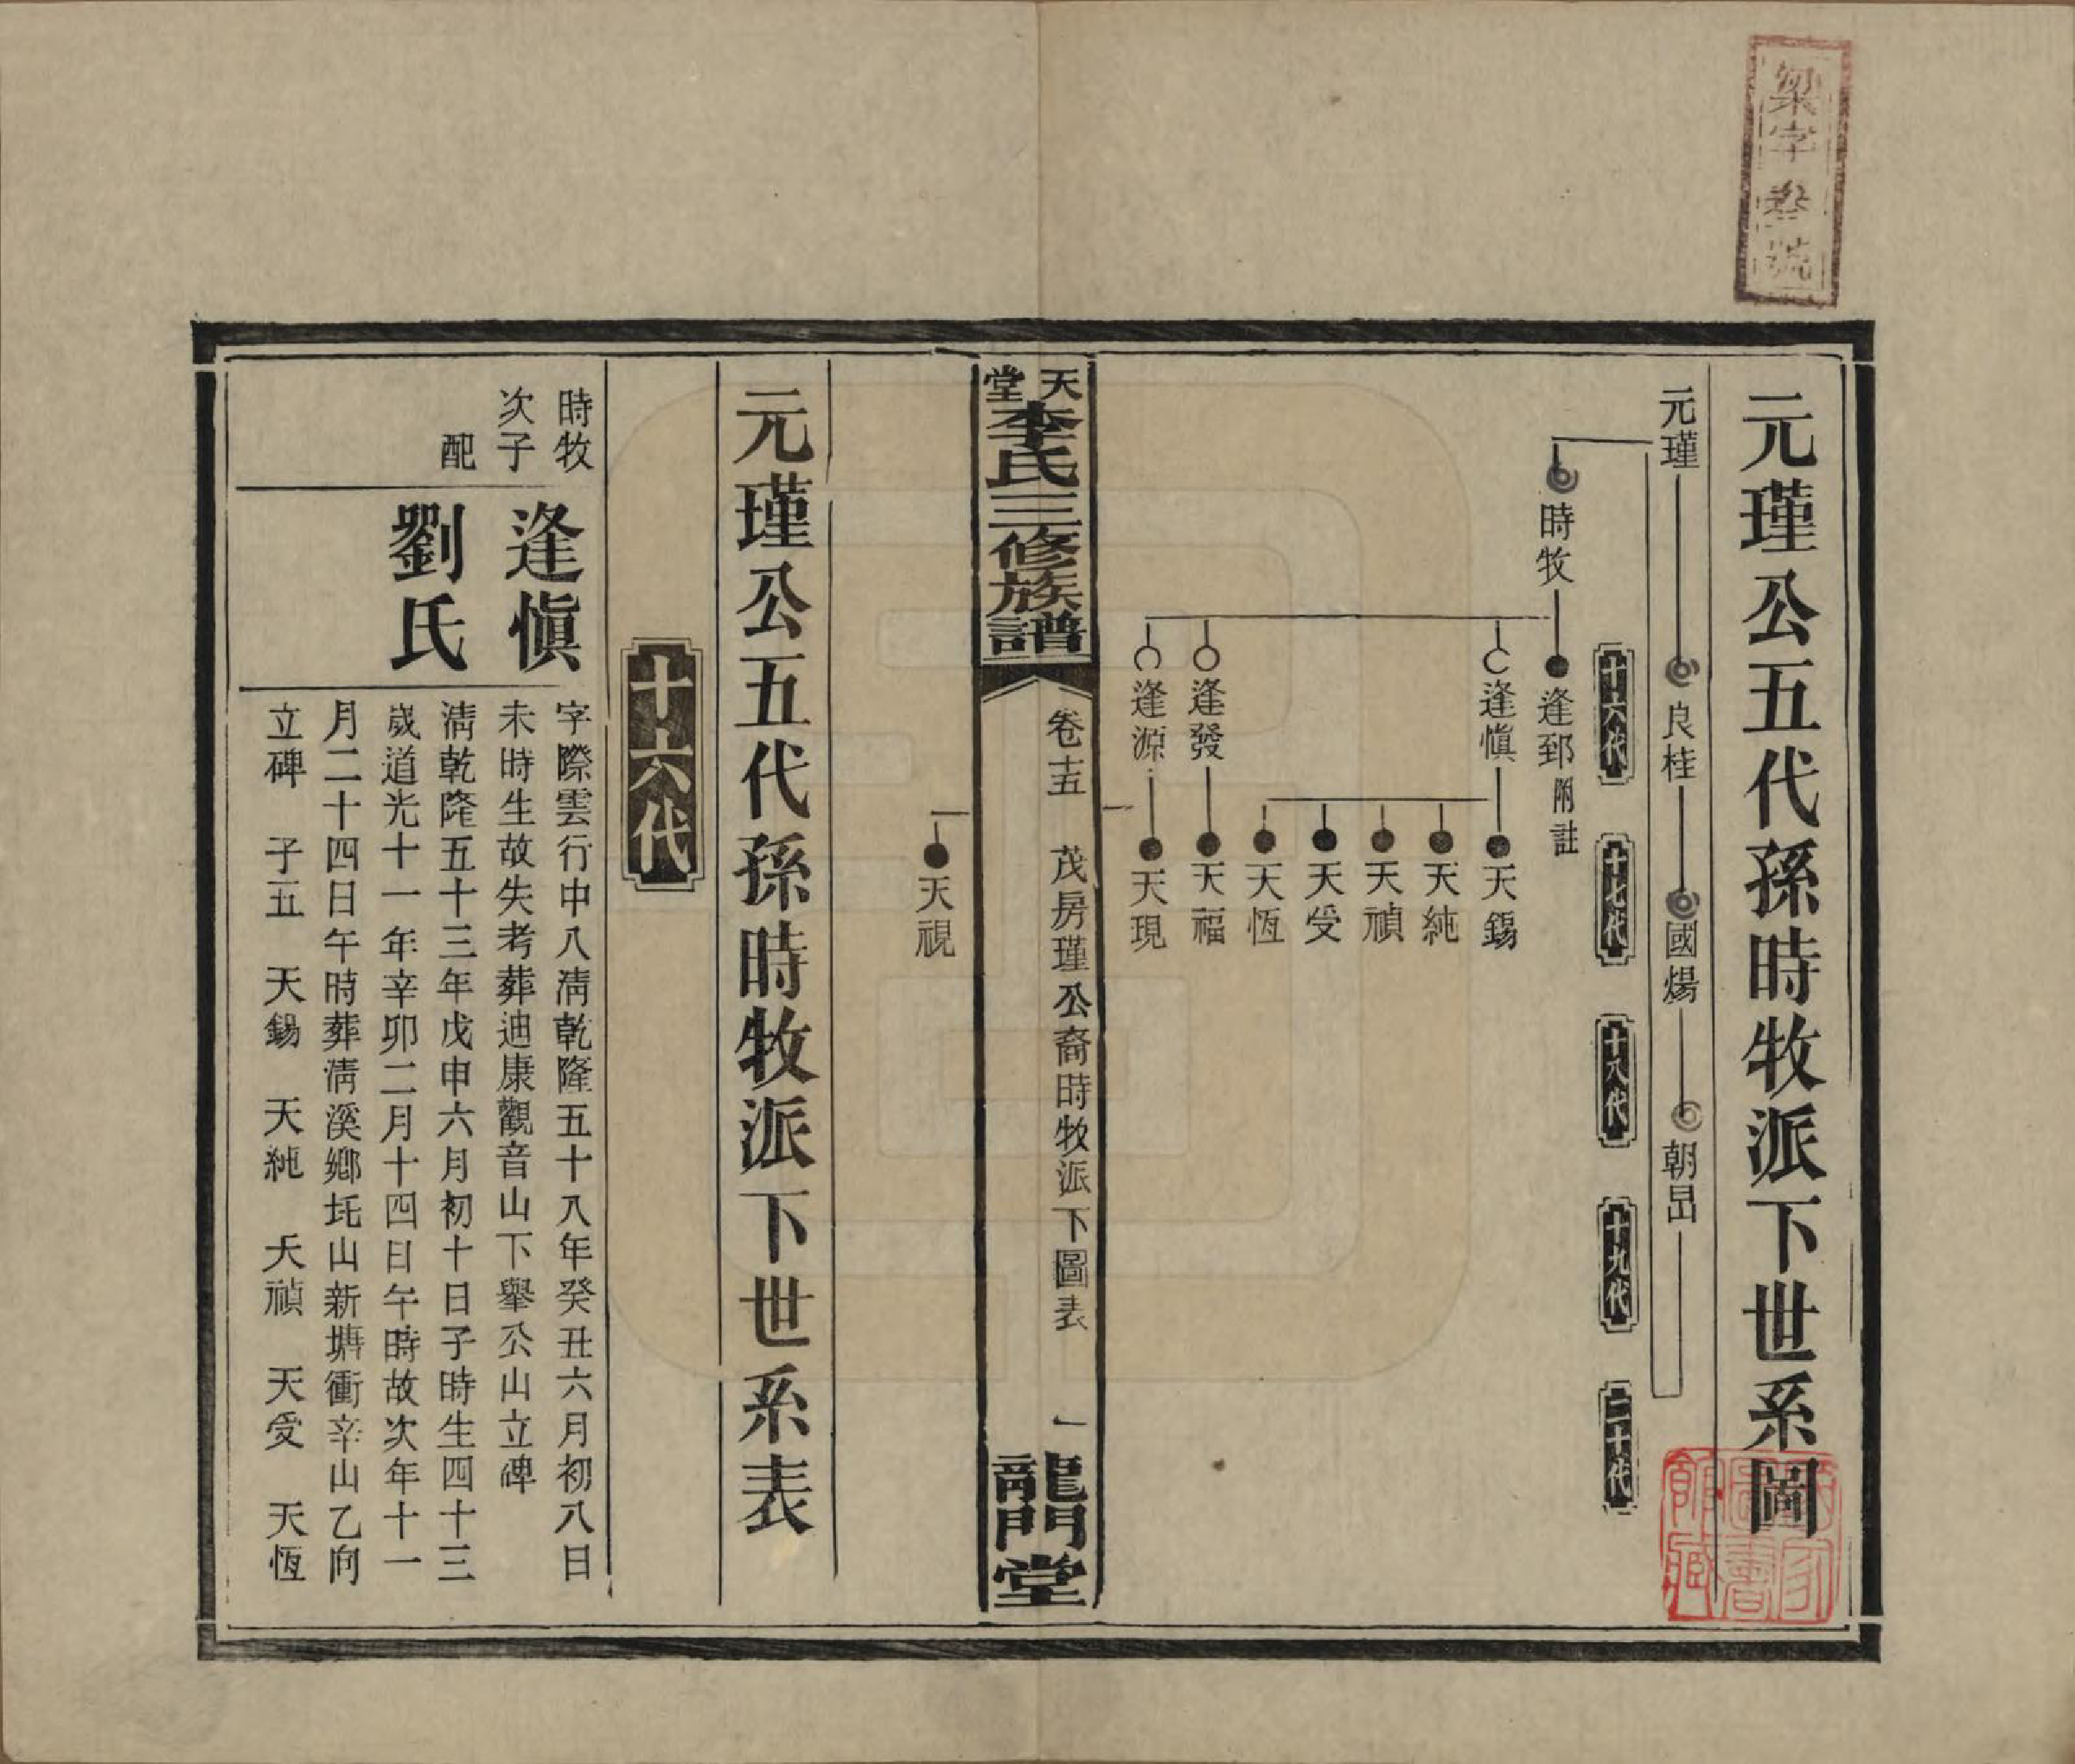 梁字叁號
元瑾公五代孫時牧派下世系圖
元瑾 良桂 國煬 朝岊
十六代 十七代 十八代 十九代 二十代
時牧 逢郅附註
逢慎 天錫
天純
天禎
天受
天恆
逢發 天福
逢源 天現
天堂李氏三修族譜 卷十五 茂房瑾公裔時牧派下圖表 一 龍門堂
天視
元瑾公五代孫時牧派下世系表
十六代
時牧次子 逢慎
字際雲行中八淸乾隆五十八年癸丑六月初八日
未時生故失考葬迪康觀音山下舉公山立碑
配 劉氏
淸乾隆五十三年戊申六月初十日子時生四十三
歲道光十一年辛卯二月十四日午時故次年十一
月二十四日午時葬淸溪鄉圫山新塘衝辛山乙向
立碑 子五 天錫 天純 天禎 天受 天恆